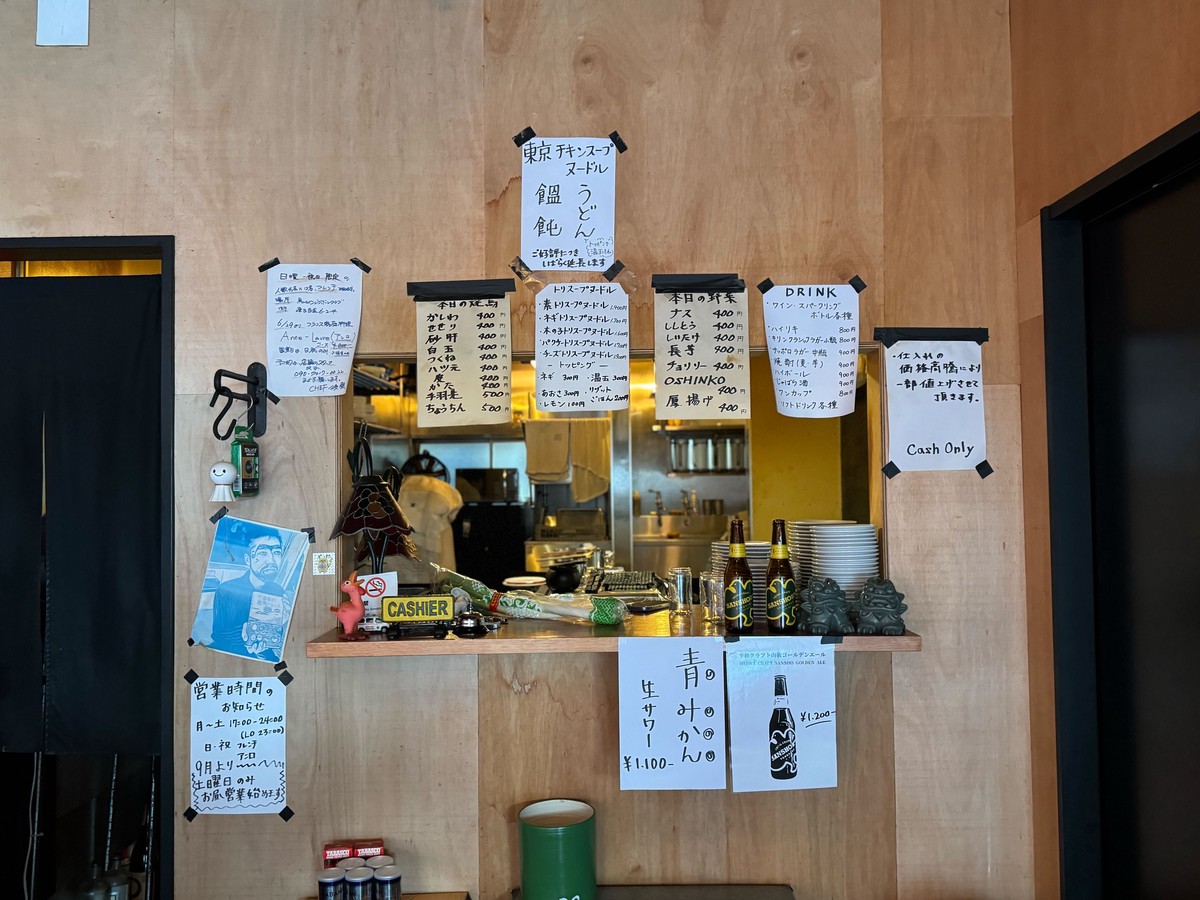 東京 チキンスープ
ヌードル
うどん
饂飩
ご好評につき
しばらく延長します
日曜・祝日 限定の
本日の焼鳥
かしわ 400円
せせり 400円
砂肝 400円
白玉 400円
つくね 400円
ハツ元 400円
手羽先 500
ちょうちん 500円
トリスープヌードル
・素トリスープヌードル
・ネギトリスープヌードル
・木の子トリスープヌードル
・パクチートリスープヌードル
・チーズトリスープヌードル
ートッピングー
ネギ 300円 ・温玉 300円
・あおさ 300円 ・リゾット
・レモン 100円 ごはん 200円
本日の野菜
ナス 400円
ししとう 400円
しいたけ 400円
長芋 400円
チョリソー 400円
OSHINKO
400円
厚揚げ 400円
DRINK
・ワイン・スパークリング
ボトル各種
・ハイリキ 800円
・キリンクラシックラガー小瓶 800円
・サッポロラガー中瓶 900円
・焼酎(麦・芋) 900円
・ハイボール 900円
・じゃばら酒 900円
・ワンカップ 800円
・ソフトドリンク各種
・仕入れの
価格高騰により
一部値上げさせて
頂きます。
Cash Only
CASHIER
SANSHO
営業時間の
お知らせ
月〜土 17:00-24:00
(LO 23:00)
日・祝 フレンチ
アニロ
9月より
土曜日のみ
お昼営業始めます
青みかん
生サワー
¥1.100-
平和クラフト山椒ゴールデンエール
HEIWA CRAFT SANSHO GOLDEN ALE
¥1.200-
TABASCO